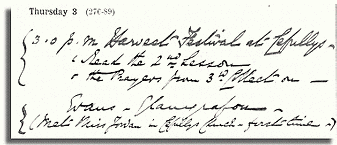 Thursday 3 (276-89)
3.0 p.m. Harvest Festival at Cefnllys -
Read the 2nd Lesson
& the Prayers from 3rd Collect on -
Evans -
(Met Miss in Cefnllys Church - first time -)